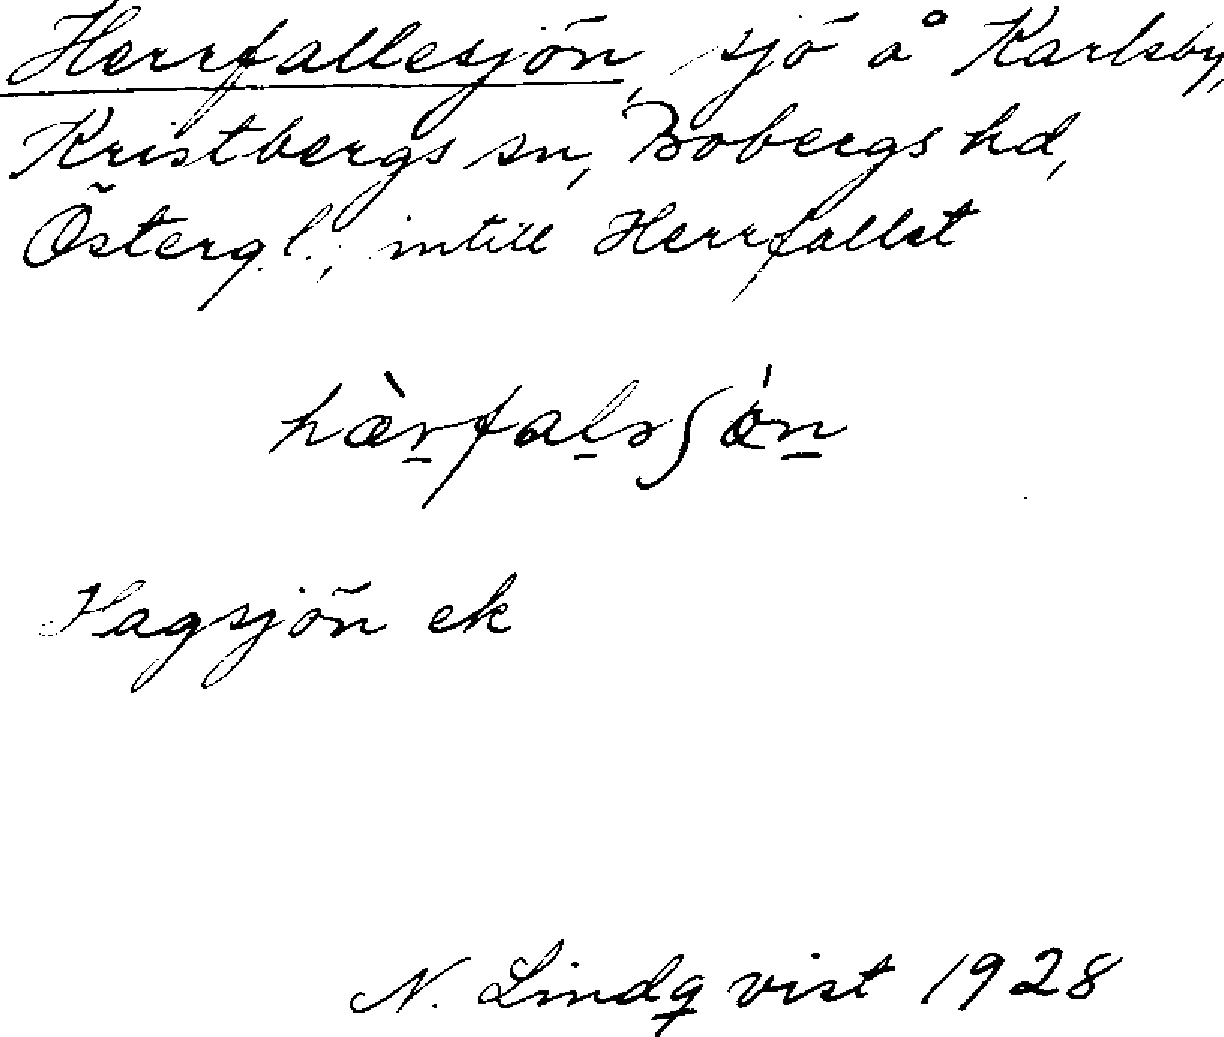 Herrfallesjön, sjö å Karlsby,
Kristbergs sn, Bobergs hd,
Östergl.; intill Herrfallet
hæ̀r̲fal̲sʃǿn̲
Hagsjön ek
N. Lindqvist 1928